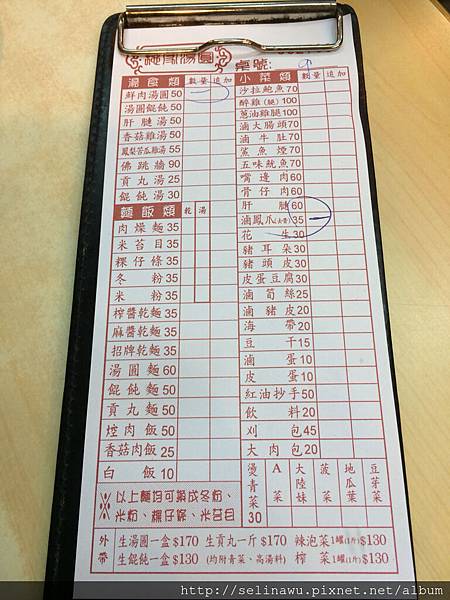 湯圓
桌號:
湯食類 數量 追加
鮮肉湯圓50
湯圓餛飩50
肝腱湯50
香菇雞湯50
鳳梨苦瓜雞湯55
佛跳牆90
貢丸湯25
餛飩湯30
麵飯類 乾 湯
肉燥麵35
米苔目35
粿仔條35
冬粉35
米粉35
榨醬乾麵35
麻醬乾麵35
招牌乾麵35
湯圓麵60
餛飩麵50
貢丸麵50
焢肉飯50
香菇肉飯25
白飯10
※以上麵均可換成冬粉、
米粉、粿仔條、米苔目
小菜類 數量 追加
沙拉鮑魚70
醉雞(腿)100
蔥油雞腿100
滷大腸頭70
滷牛肚70
鯊魚煙70
五味魷魚70
嘴邊肉60
骨仔肉60
肝腱60
滷鳳爪(去骨)35 一
花生30
豬耳朵30
豬頭皮30
皮蛋豆腐30
滷筍絲25
滷豬皮20
海帶20
豆干15
滷蛋10
皮蛋10
紅油抄手50
飲料20
刈包45
大肉包20
燙青菜30
A菜
大陸妹
菠菜
地瓜葉
豆芽菜
外帶
生湯圓一盒$170 生貢丸一斤$170 辣泡菜1罐(1斤)$130
生餛飩一盒$130 (均附青菜、高湯料) 榨菜1罐(1斤)$130
http://selinawu.pixnet.net/album